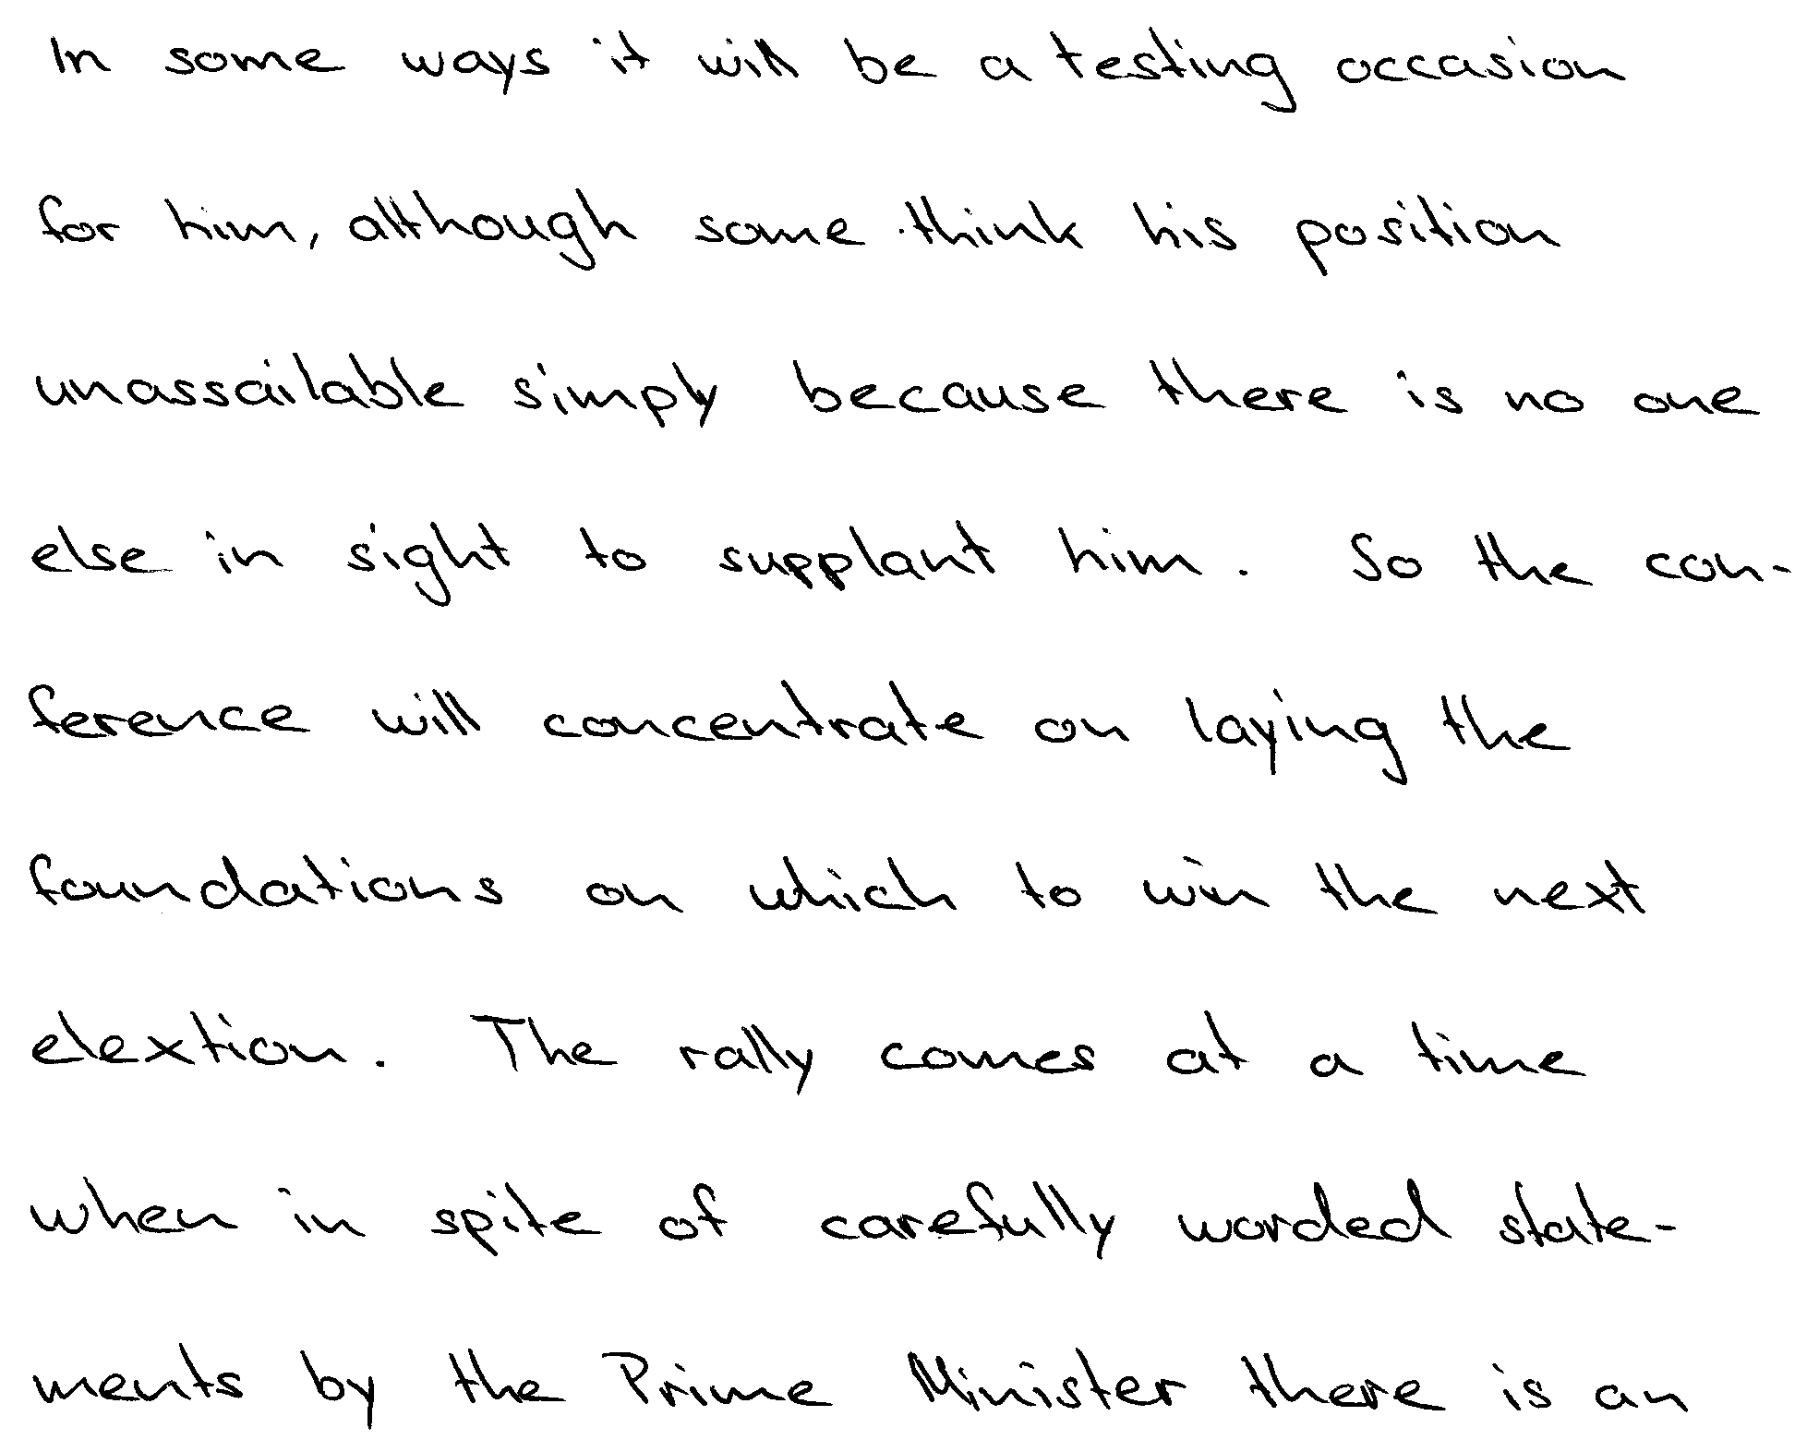 In some ways it will be a testing occasion
for him, although some think his position
unassailable simply because there is no one
else in sight to supplant him. So the con-
ference will concentrate on laying the
foundations on which to win the next
elextion. The rally comes at a time
when in spite of carefully worded state-
ments by the Prime Minister there is an